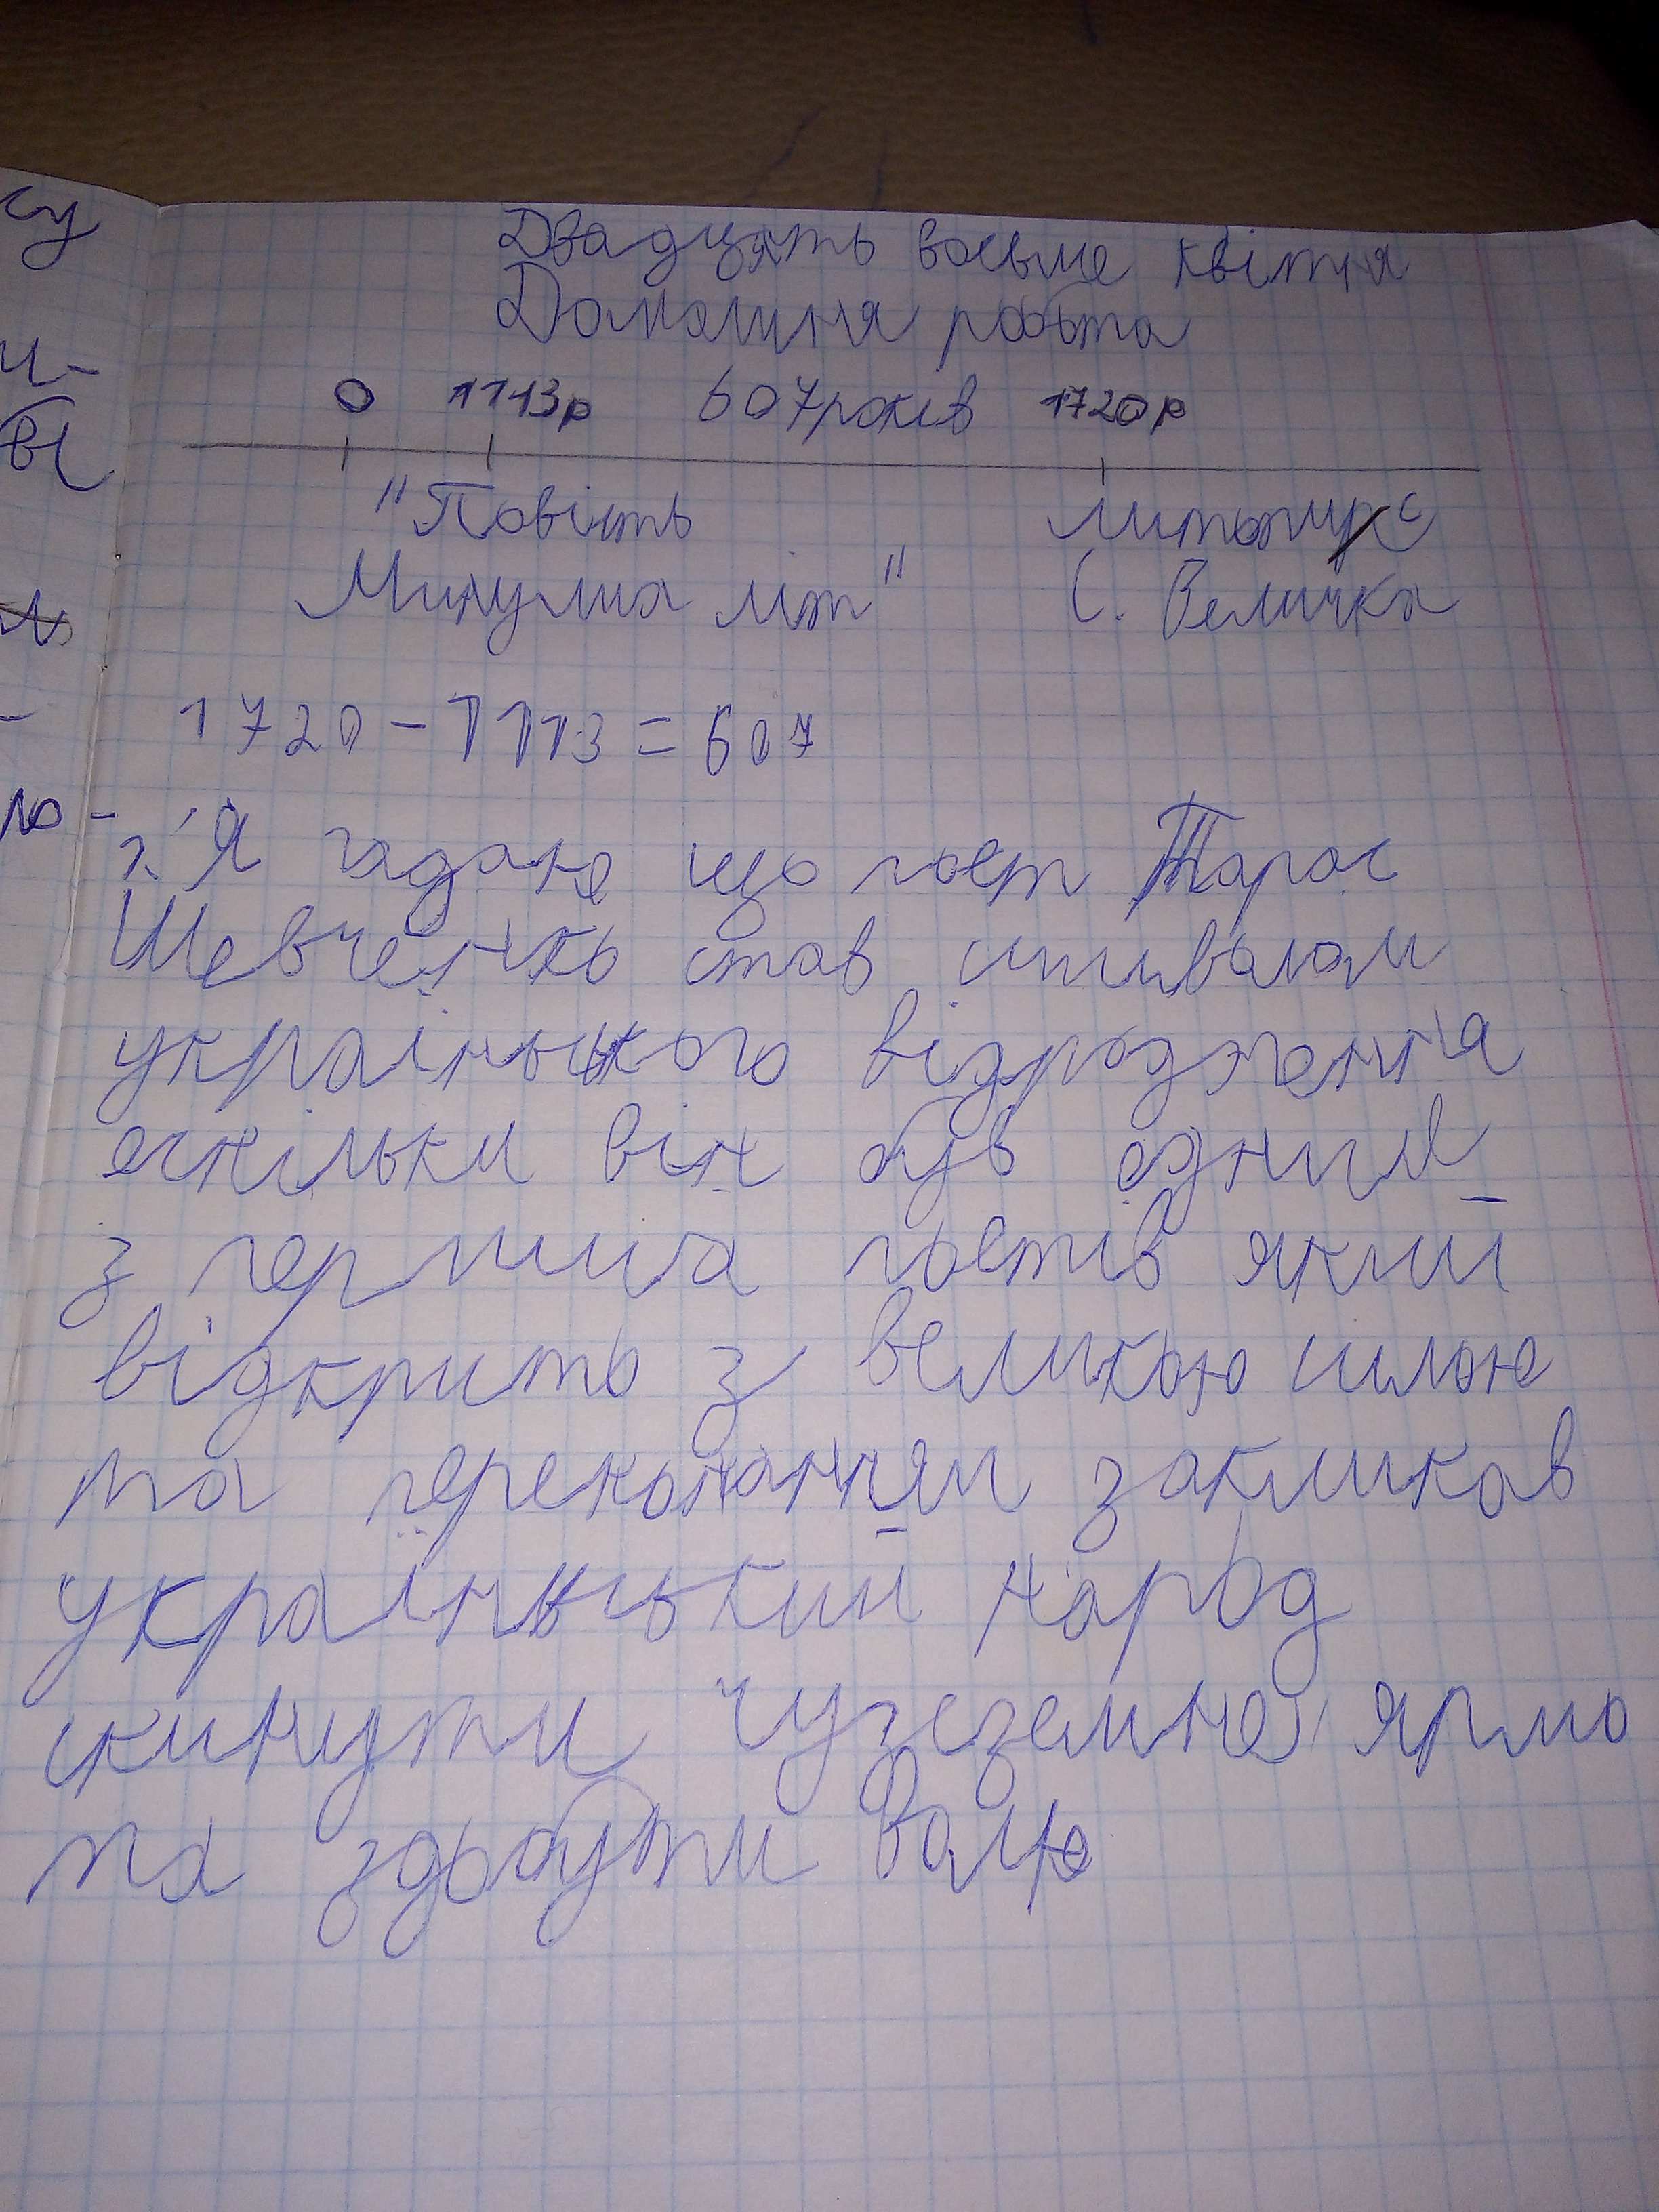 Двадцять восьме квітня
Домашня робота
0 1113р 607років 1720р
"Повість Литопис
Минулих літ" С. Величка
1720-1113=607
1. Я гадаю що поет Тарас
Шевченко став символом
українського відродження
оскільки він був одним
з перших поетів який
відкрито з великою силою
та переконанням закликав
український народ
скинути чужеземне ярмо
та здобути Волю
су
и-
ві
-
ю-